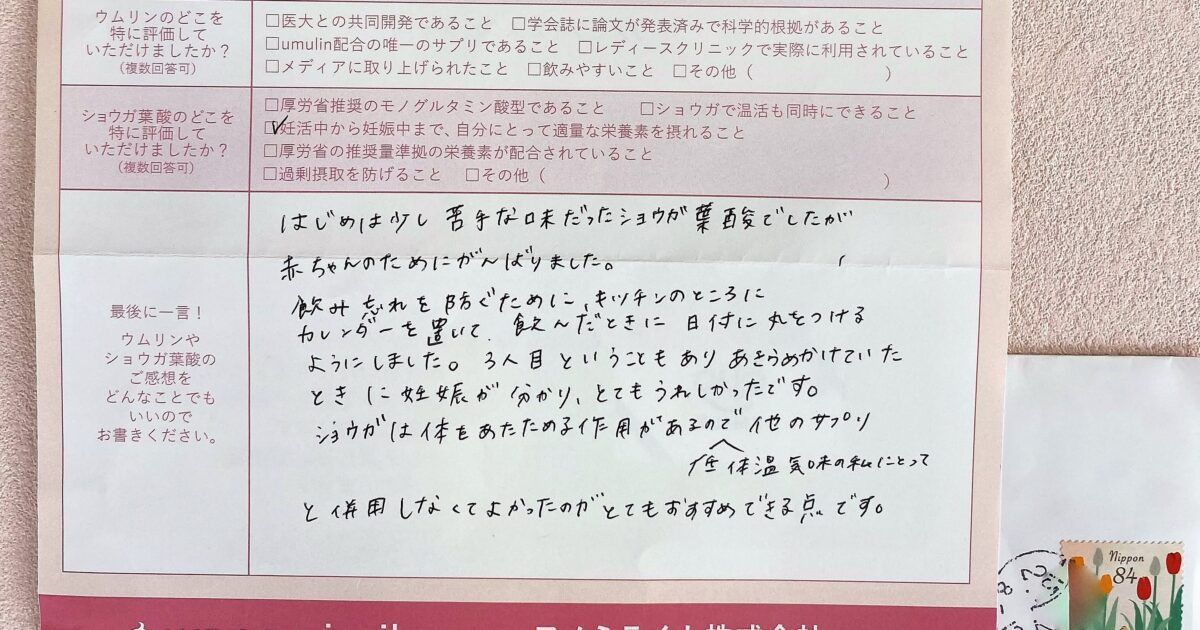 ウムリンのどこを
特に評価して
いただけましたか？
（複数回答可）
□医大との共同開発であること □学会誌に論文が発表済みで科学的根拠があること
□umulin配合の唯一のサプリであること □レディースクリニックで実際に利用されていること
□メディアに取り上げられたこと □飲みやすいこと □その他（ ）
ショウガ葉酸のどこを
特に評価して
いただけましたか？
（複数回答可）
□厚労省推奨のモノグルタミン酸型であること □ショウガで温活も同時にできること
☑妊活中から妊娠中まで、自分にとって適量な栄養素を摂れること
□厚労省の推奨量準拠の栄養素が配合されていること
□過剰摂取を防げること □その他（ ）
最後に一言！
ウムリンや
ショウガ葉酸の
ご感想を
どんなことでも
いいので
お書きください。
はじめは少し苦手な味だったショウガ葉酸でしたが
赤ちゃんのためにがんばりました。
飲み忘れを防ぐために、キッチンのところに
カレンダーを置いて、飲んだときに日付に丸をつける
ようにしました。3人目ということもありあきらめかけていた
ときに妊娠が分かり、とてもうれしかったです。
ショウガは体をあたためる作用があるので他のサプリ
低体温気味の私にとって
と併用しなくてよかったのがとてもおすすめできる点です。
Nippon
84